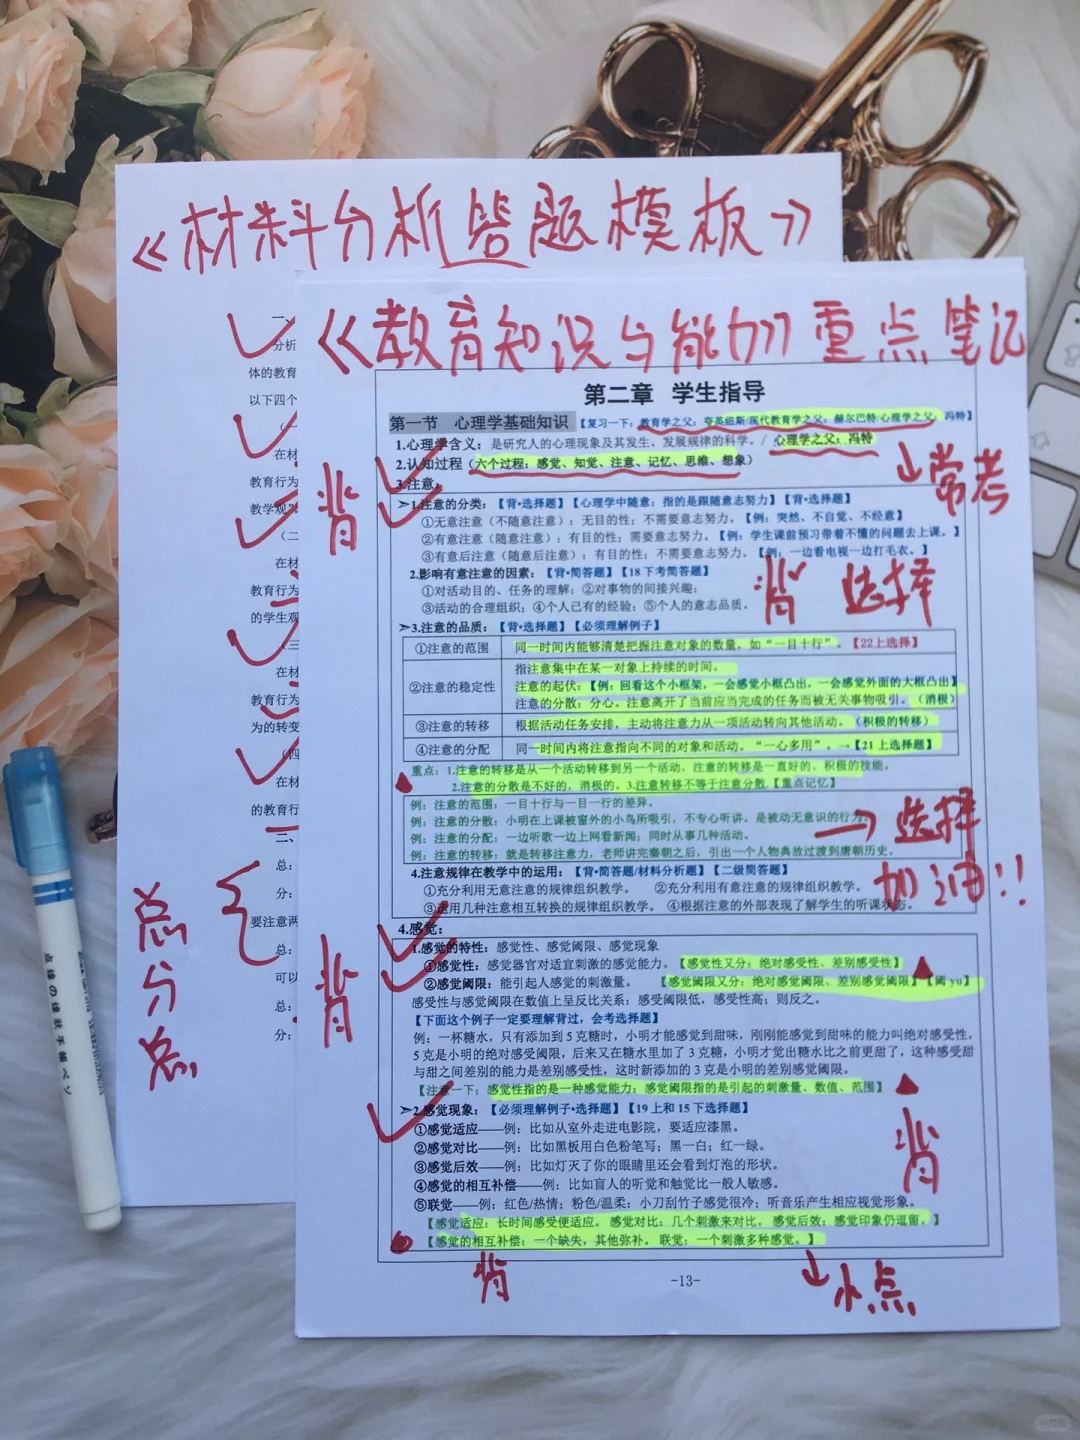 《材料分析答题模板》
一、
分析
体的教育
以下四个
（一
在材
教育行为
教学观”
（二
在材
教育行为
的学生观
（三
在材
教育行为
为的转变
（四
在材
的教育行
二、
总：
分：
要注意两
总：
可以
总：
分：
总
分
总
《教育知识与能力》重点笔记
第二章 学生指导
第一节 心理学基础知识【复习一下：教育学之父：夸美纽斯/现代教育学之父：赫尔巴特/心理学之父：冯特】
1.心理学含义：是研究人的心理现象及其发生、发展规律的科学。/ 心理学之父：冯特
2.认知过程（六个过程：感觉、知觉、注意、记忆、思维、想象）
↓常考
3.注意：
背
➢1.注意的分类：【背·选择题】【心理学中随意：指的是跟随意志努力】【背·选择题】
①无意注意（不随意注意）：无目的性；不需要意志努力。【例：突然、不自觉、不经意】
②有意注意（随意注意）：有目的性；需要意志努力。【例：学生课前预习带着不懂的问题去上课。】
③有意后注意（随意后注意）：有目的性；不需要意志努力。【例：一边看电视一边打毛衣。】
2.影响有意注意的因素：【背·简答题】【18下考简答题】
①对活动目的、任务的理解；②对事物的间接兴趣；
③活动的合理组织；④个人已有的经验；⑤个人的意志品质。
背 选择
➢3.注意的品质：【背·选择题】【必须理解例子】
①注意的范围 同一时间内能够清楚把握注意对象的数量，如“一目十行”。【22上选择】
②注意的稳定性 指注意集中在某一对象上持续的时间。
注意的起伏：【例：回看这个小框架，一会感觉小框凸出，一会感觉外面的大框凸出】
注意的分散：分心。注意离开了当前应当完成的任务而被无关事物吸引。（消极）
③注意的转移 根据活动任务安排，主动将注意力从一项活动转向其他活动。（积极的转移）
④注意的分配 同一时间内将注意指向不同的对象和活动。“一心多用”。→【21上选择题】
重点：1.注意的转移是从一个活动转移到另一个活动，注意的转移是一直好的、积极的技能。
2.注意的分散是不好的，消极的。3.注意转移不等于注意分散【重点记忆】
例：注意的范围：一目十行与一目一行的差异。
例：注意的分散：小明在上课被窗外的小鸟所吸引，不专心听讲。是被动无意识的行为。
例：注意的分配：一边听歌一边上网看新闻；同时从事几种活动。
例：注意的转移：就是转移注意力，老师讲完秦朝之后，引出一个人物典故过渡到唐朝历史。
→选择
加油!!
4.注意规律在教学中的运用：【背·简答题/材料分析题】【二级简答题】
①充分利用无意注意的规律组织教学。 ②充分利用有意注意的规律组织教学。
③运用几种注意相互转换的规律组织教学。 ④根据注意的外部表现了解学生的听课状态。
4.感觉：
背
1.感觉的特性：感觉性、感觉阈限、感觉现象
①感觉性：感觉器官对适宜刺激的感觉能力。【感觉性又分：绝对感受性、差别感受性】
②感觉阈限：能引起人感觉的刺激量。 【感觉阈限又分：绝对感觉阈限、差别感觉阈限】【阈 yu】
感受性与感觉阈限在数值上呈反比关系：感受阈限低，感受性高；则反之。
【下面这个例子一定要理解背过，会考选择题】
例：一杯糖水，只有添加到5克糖时，小明才能感觉到甜味，刚刚能感觉到甜味的能力叫绝对感受性，
5克是小明的绝对感受阈限，后来又在糖水里加了3克糖，小明才觉出糖水比之前更甜了，这种感受甜
与甜之间差别的能力是差别感受性，这时新添加的3克是小明的差别感觉阈限。
【注意一下：感觉性指的是一种感觉能力；感觉阈限指的是引起的刺激量、数值、范围】
➢2.感觉现象：【必须理解例子·选择题】【19上和15下选择题】
①感觉适应——例：比如从室外走进电影院，要适应漆黑。
②感觉对比——例：比如黑板用白色粉笔写；黑一白；红一绿。
③感觉后效——例：比如灯灭了你的眼睛里还会看到灯泡的形状。
④感觉的相互补偿——例：比如盲人的听觉和触觉比一般人敏感。
⑤联觉——例：红色/热情；粉色/温柔；小刀刮竹子感觉很冷；听音乐产生相应视觉形象。
【感觉适应：长时间感受便适应。感觉对比：几个刺激来对比。感觉后效：感觉印象仍逗留。】
【感觉的相互补偿：一个缺失，其他弥补。联觉：一个刺激多种感觉。】
背
背
-13-
↓小点